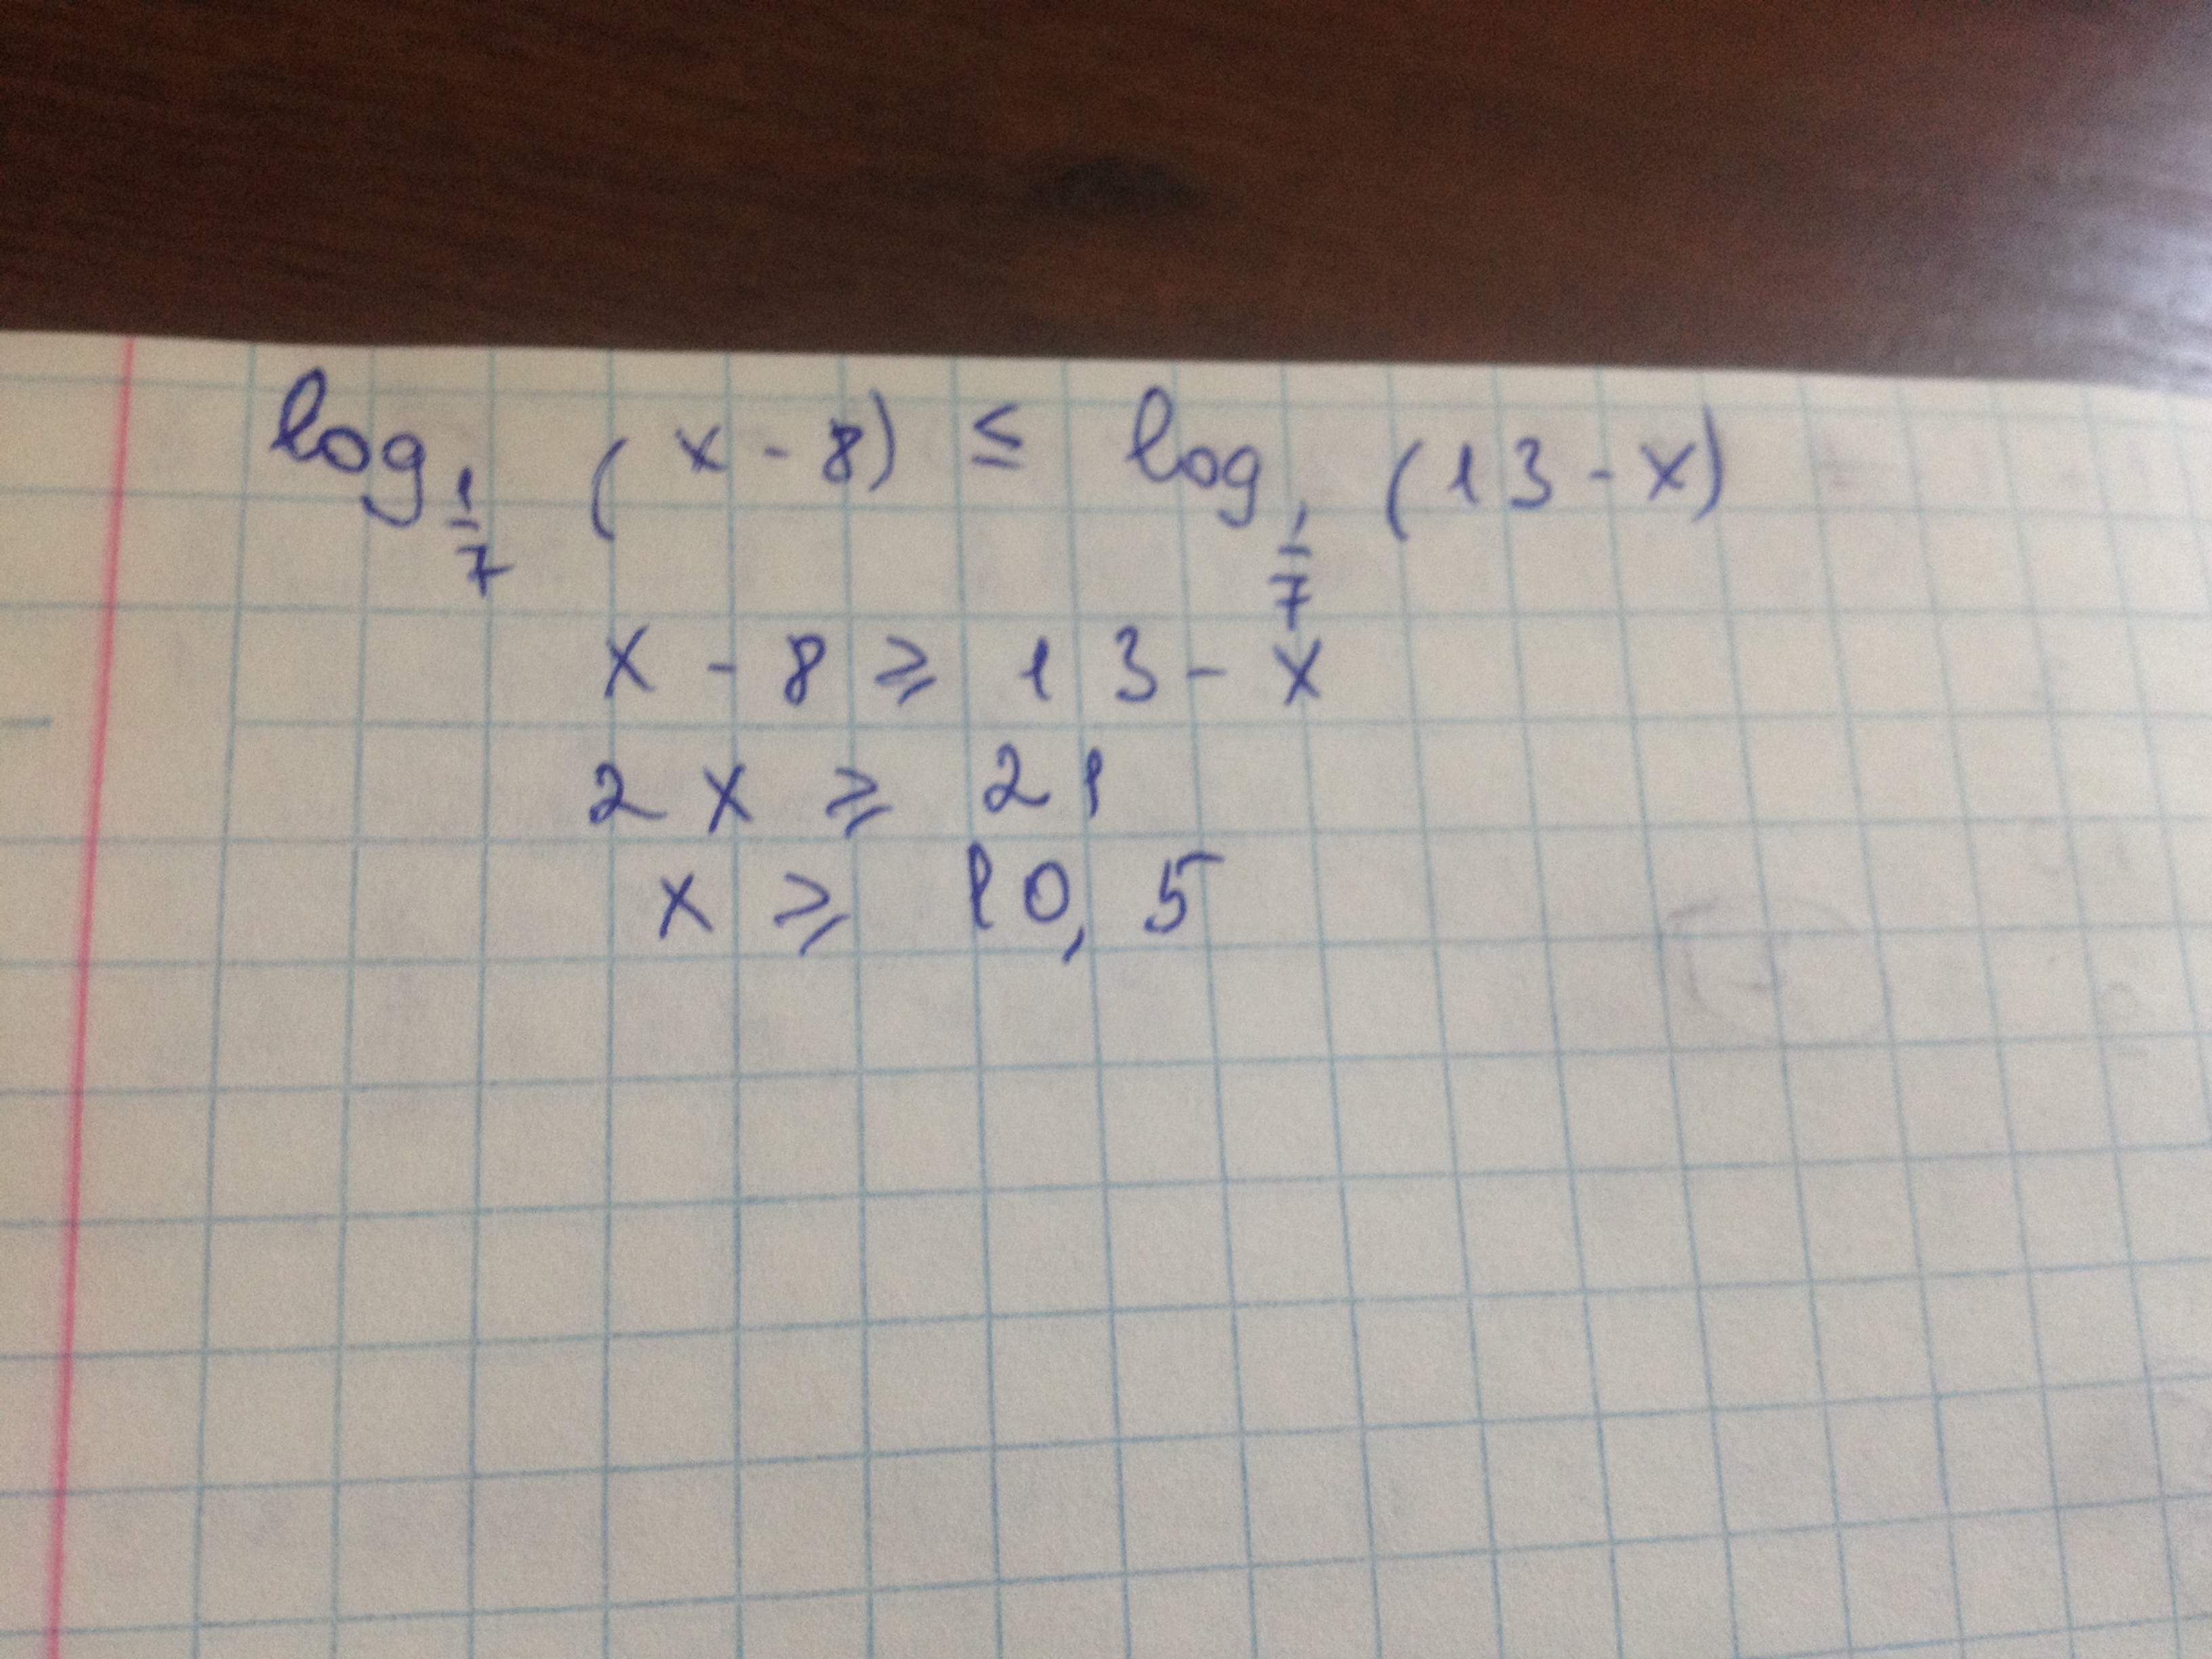 log_{1/7} (x - 8) ≤ log_{1/7} (13 - x)
x - 8 ⩾ 13 - x
2x ⩾ 21
x ⩾ 10,5